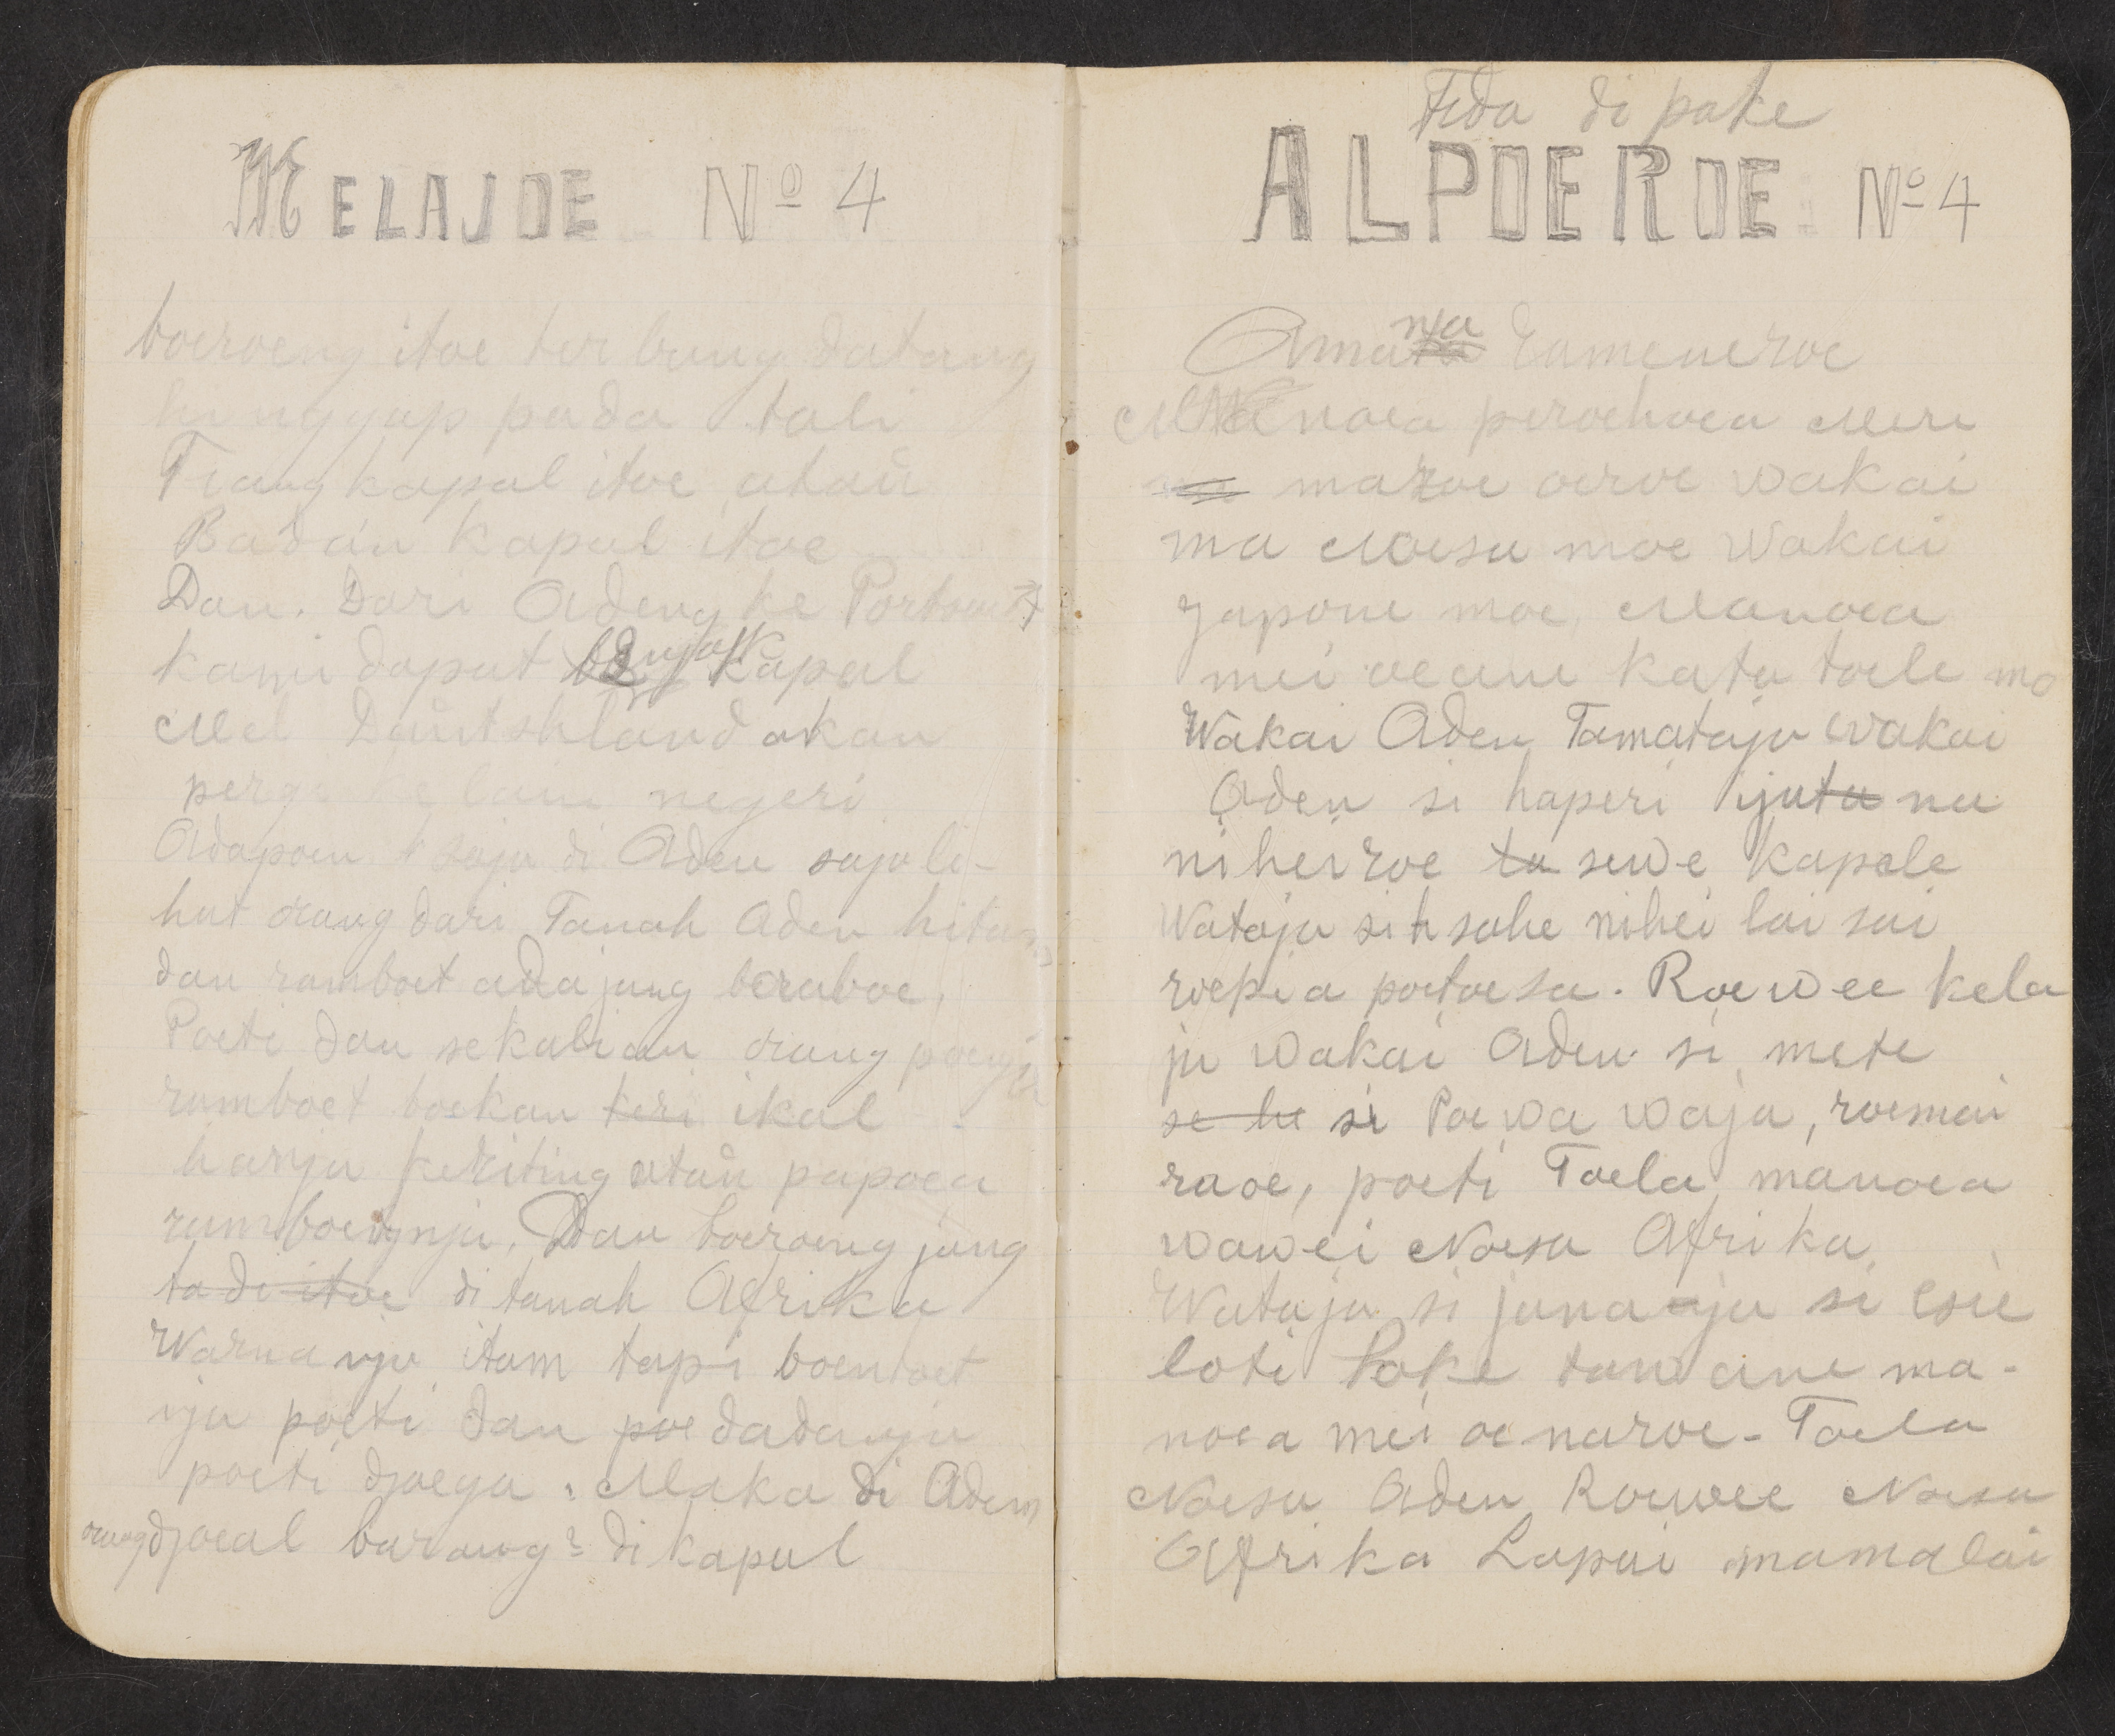 MELAJOE No 4
boeroeng itoe ter bang datang
hinggap pada tali
Tiang kapal itoe atau
Badan kapal itoe
Dan. Dari Adeng ke
kami dapat kapal
Mel Dautshland akan
pergi ke lain negeri
Adapoen saja di Aden saja li-
hat orang dari Tanah Aden hitam
dan ramboet ada jang beraboe,
Poeti dan sekalian orang poenja
ramboet boekan keri ikal
hanja keriting atau papoea
ramboetnja, Dan boeroeng jang
tadi itoe di tanah Afrika
Warna nja itam tapi boentoet
nja poeti dan poe dadanja
poeti djoega. Maka di Aden
orang djoeal barang2 di kapal
Tida di pake
ALPOEROE No 4
Amania
Manoea peroehoea Meri
maroe oeroe wakai
ma Noesa moe Wakai
Japone moe, Manoea
mei oeane kata toele mo
Wakai Aden Tamataja wakai
Aden si haperi ijata na
niheiroe ta sewe kapale
Wataja si h sahe nihei lai sai
roepia poetoesa. Roewee kela
ju wakai Aden si mete
se he si Poewa waja, roemai
raoe, poeti Toela manoea
wawei Noesa Afrika,
Wataja si janaaja si esie
loti Poke tanwane ma-
noea mei oe naroe - Toela
Noesa Aden Roewee Noesa
Afrika Lapai mamalai